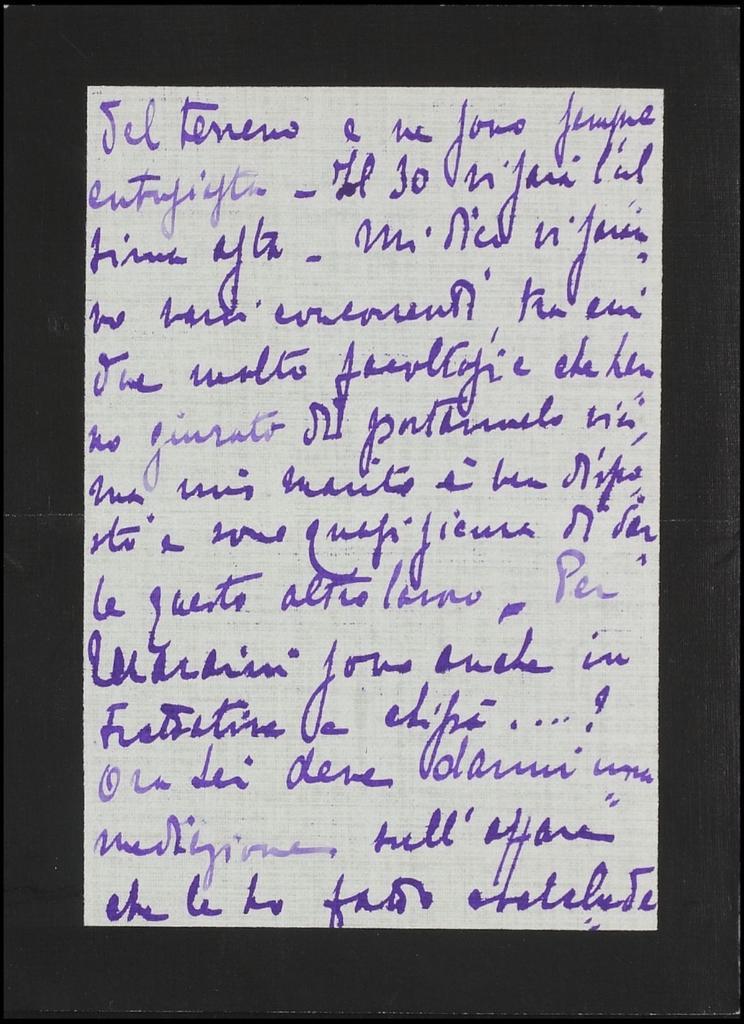 del terreno e ne sono sempre
entusiasta - Il 30 vi sarà l'ul
tima asta - Mi dico vi saran"
no varii concorrenti, tra cui
due molto facoltosi e che han
no giurato di portarmelo via,
ma mio marito è ben dispo"
sto e sono quasi sicura di dar"
le questo altro lavoro - Per
sono anche in
trattative e chissà ....?
Ora Lei deve darmi una
mediazione sull'affare"
che le ho fatto